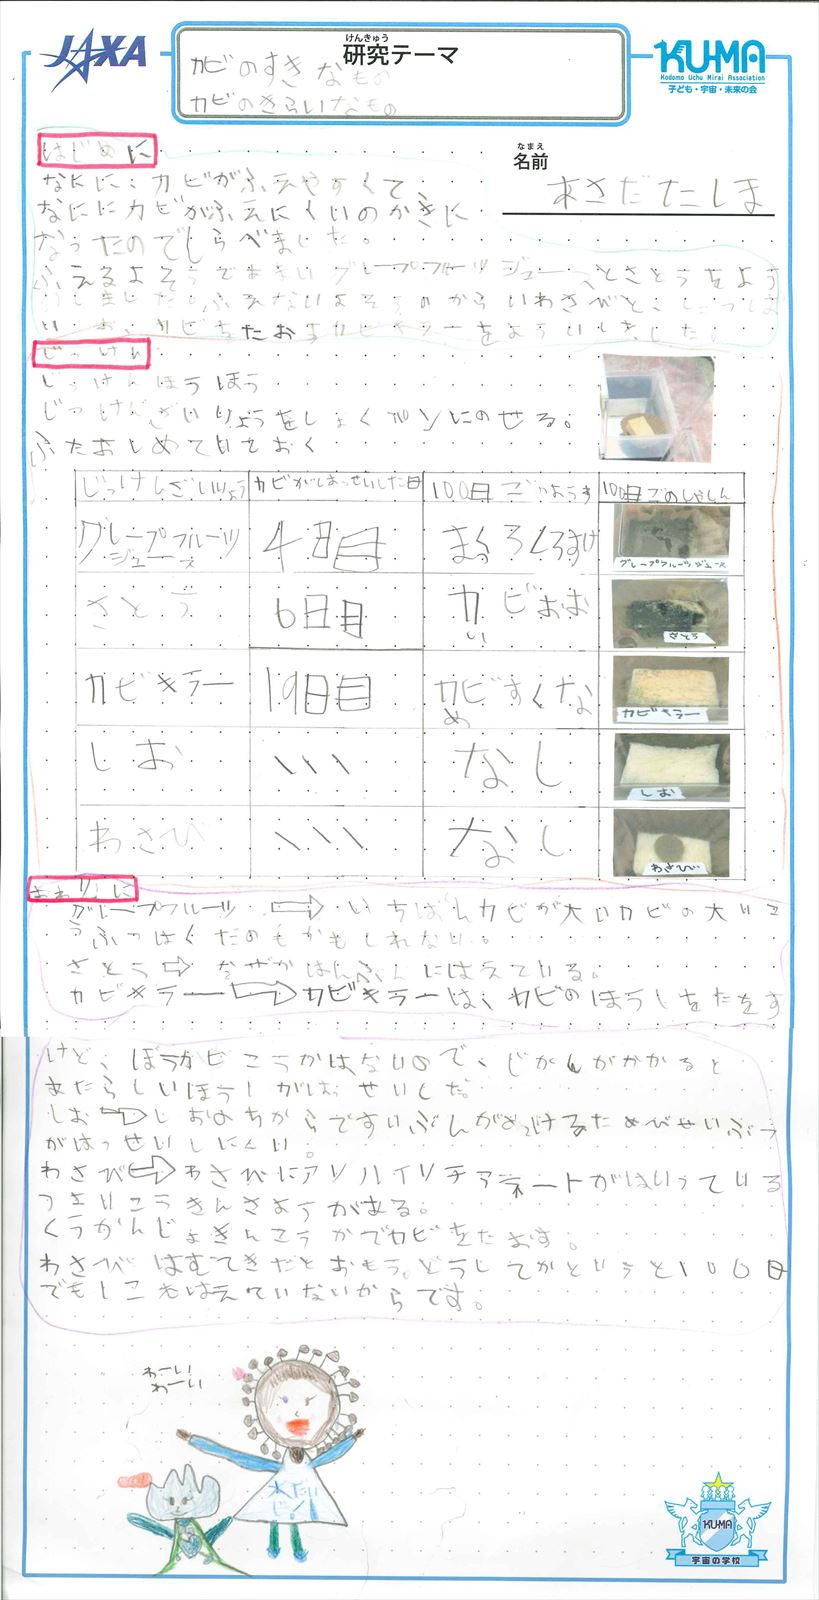 JAXA
けんきゅう
研究テーマ
カビのすきなもの
カビのきらいなもの
KU-MA
Kodomo Uchu Mirai Association
子ども・宇宙・未来の会
なまえ
名前
はじめに
なにに、カビがふえやすくて
なににカビがふえにくいのかきに
なったのでしらべました。
ふえるよそうであまいグレープフルーツジュースとさとうをよう
いしました。ふえないよそうのからいわさびと、しょっぱ
いしお、カビをたおすカビキラーをよういしました。
じっけん
じっけんほうほう
じっけんざいりょうをしょくパンにのせる。
ふたおしめていておく
じっけんざいりょう カビがはっせいした日 100日ごのようす 100日ごのしゃしん
グレープフルーツジュース 4日目 まっくろくろすけ グレープフルーツジュース
さとう 6日目 カビおおい さとう
カビキラー 19日目 カビすくなめ カビキラー
しお \\\ なし しお
わさび \\\ なし わさび
おわりに
グレープフルーツ ⇨ いちばんカビが大いカビの大いこ
うぶつはくだものもかもしれない。
さとう⇨なぜかはんぶんにはえている。
カビキラー⇨カビキラーは、カビのほうしをたをす
けど、ぼうカビこうかはないので、じかんがかかると
あたらしいほうしがはっせいしだ。
しお⇨しおのちからですいぶんがぬけるためびせいぶつ
がはっせいしにくい。
わさび⇨わさびにアリルイソチアネートがはいっている
つよいこうきんさようがある。
くうかんじょきんこうかでカビをたおす。
わさびはむてきだとおもう。どうしてかというと100日
でも1こもはえていないからです。
わーい
わーい
水だいじ!
KU-MA
宇宙の学校